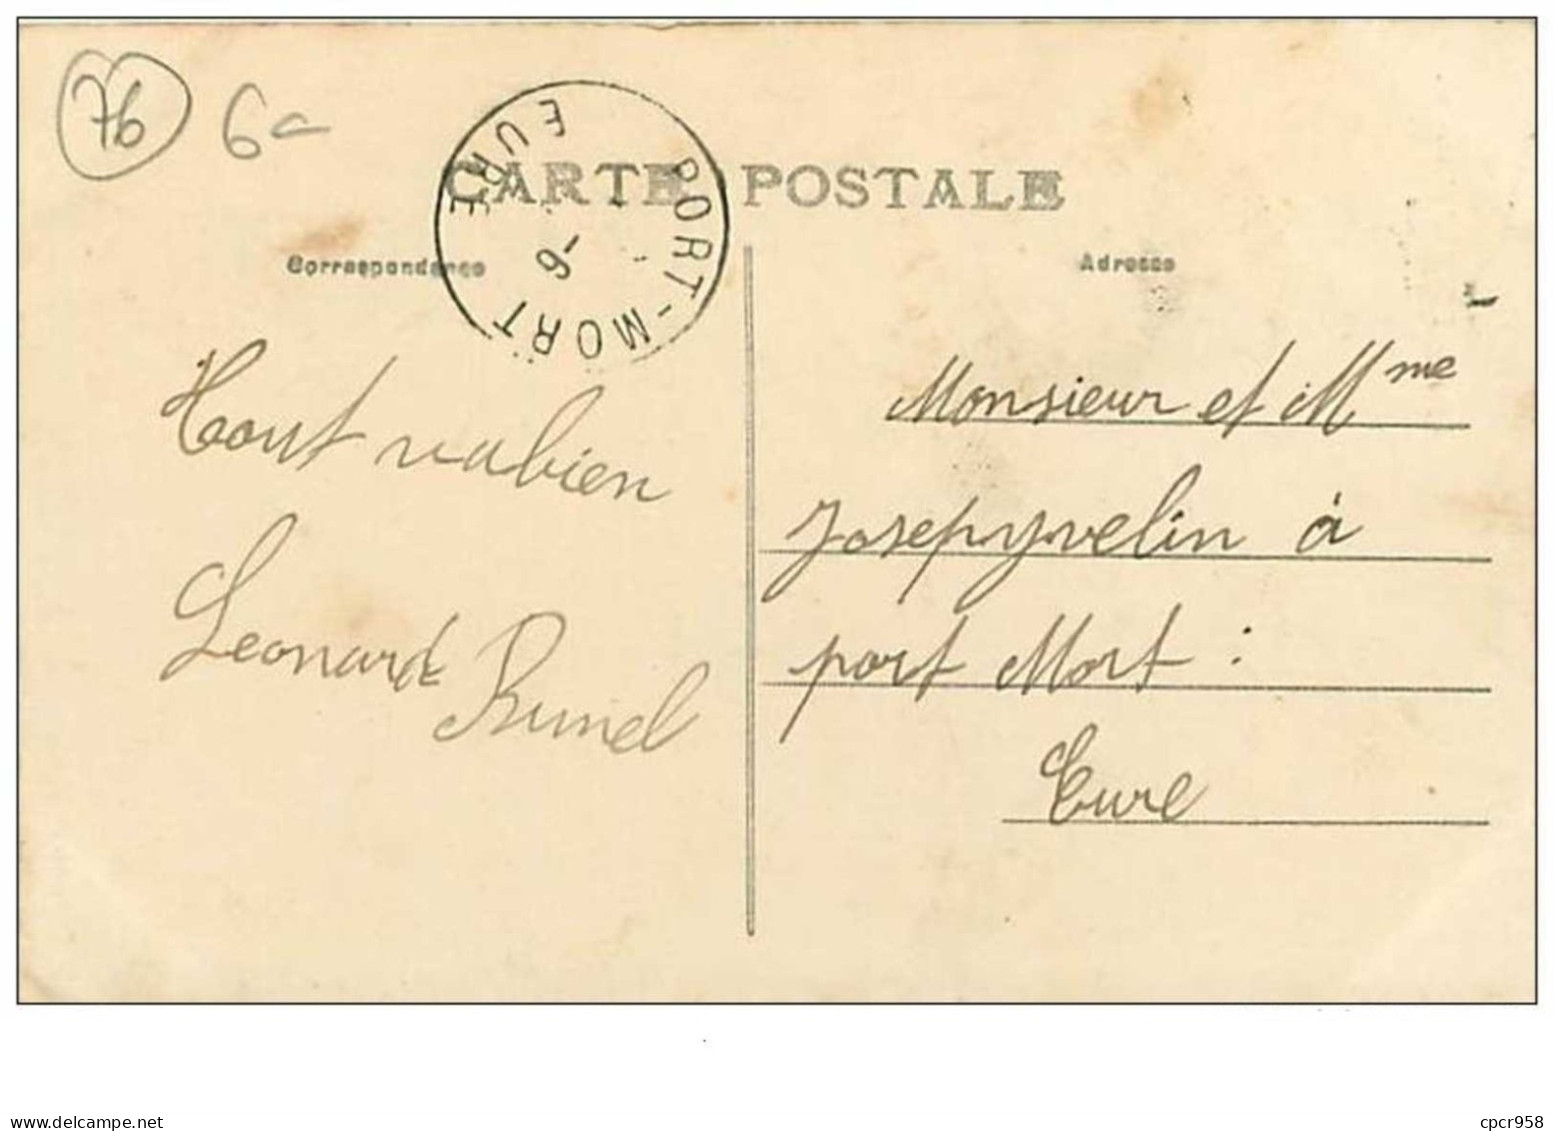 76 6
CARTE POSTALE
PORT-MORT
EURE
6-
Correspondance
Adresse
Tout va bien
Leonard Runel
Monsieur et Mme
Josep yvelin à
port Mort :
Eure
www.delcampe.net
cpcr958